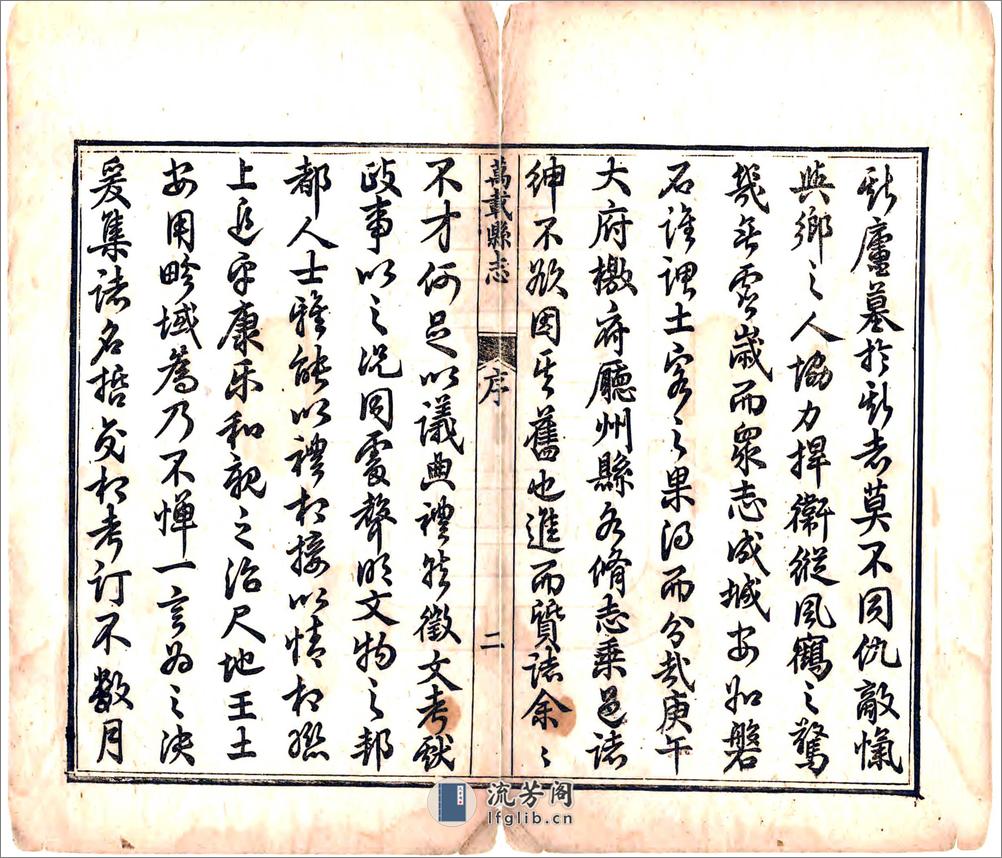 斯廬墓於斯者莫不同仇敵愾
與鄉之人協力捍衞縱風鶴之驚
幾無虛歲而眾志成城安如磐
石誰謂土客之果得而分哉庚午
大府檄府廳州縣各脩志乘邑諸
紳不欲因其舊也進而質諸余余
萬載縣志
序
二
不才何足以議典禮然徵文考獻
政事以之况同處聲明文物之邦
都人士雅能以禮相接以情相聯
上追平康樂和親之治尺地王土
安用畛域為乃不憚一言為之決
爰集諸名哲交相考訂不數月
流芳阁
lfglib.cn